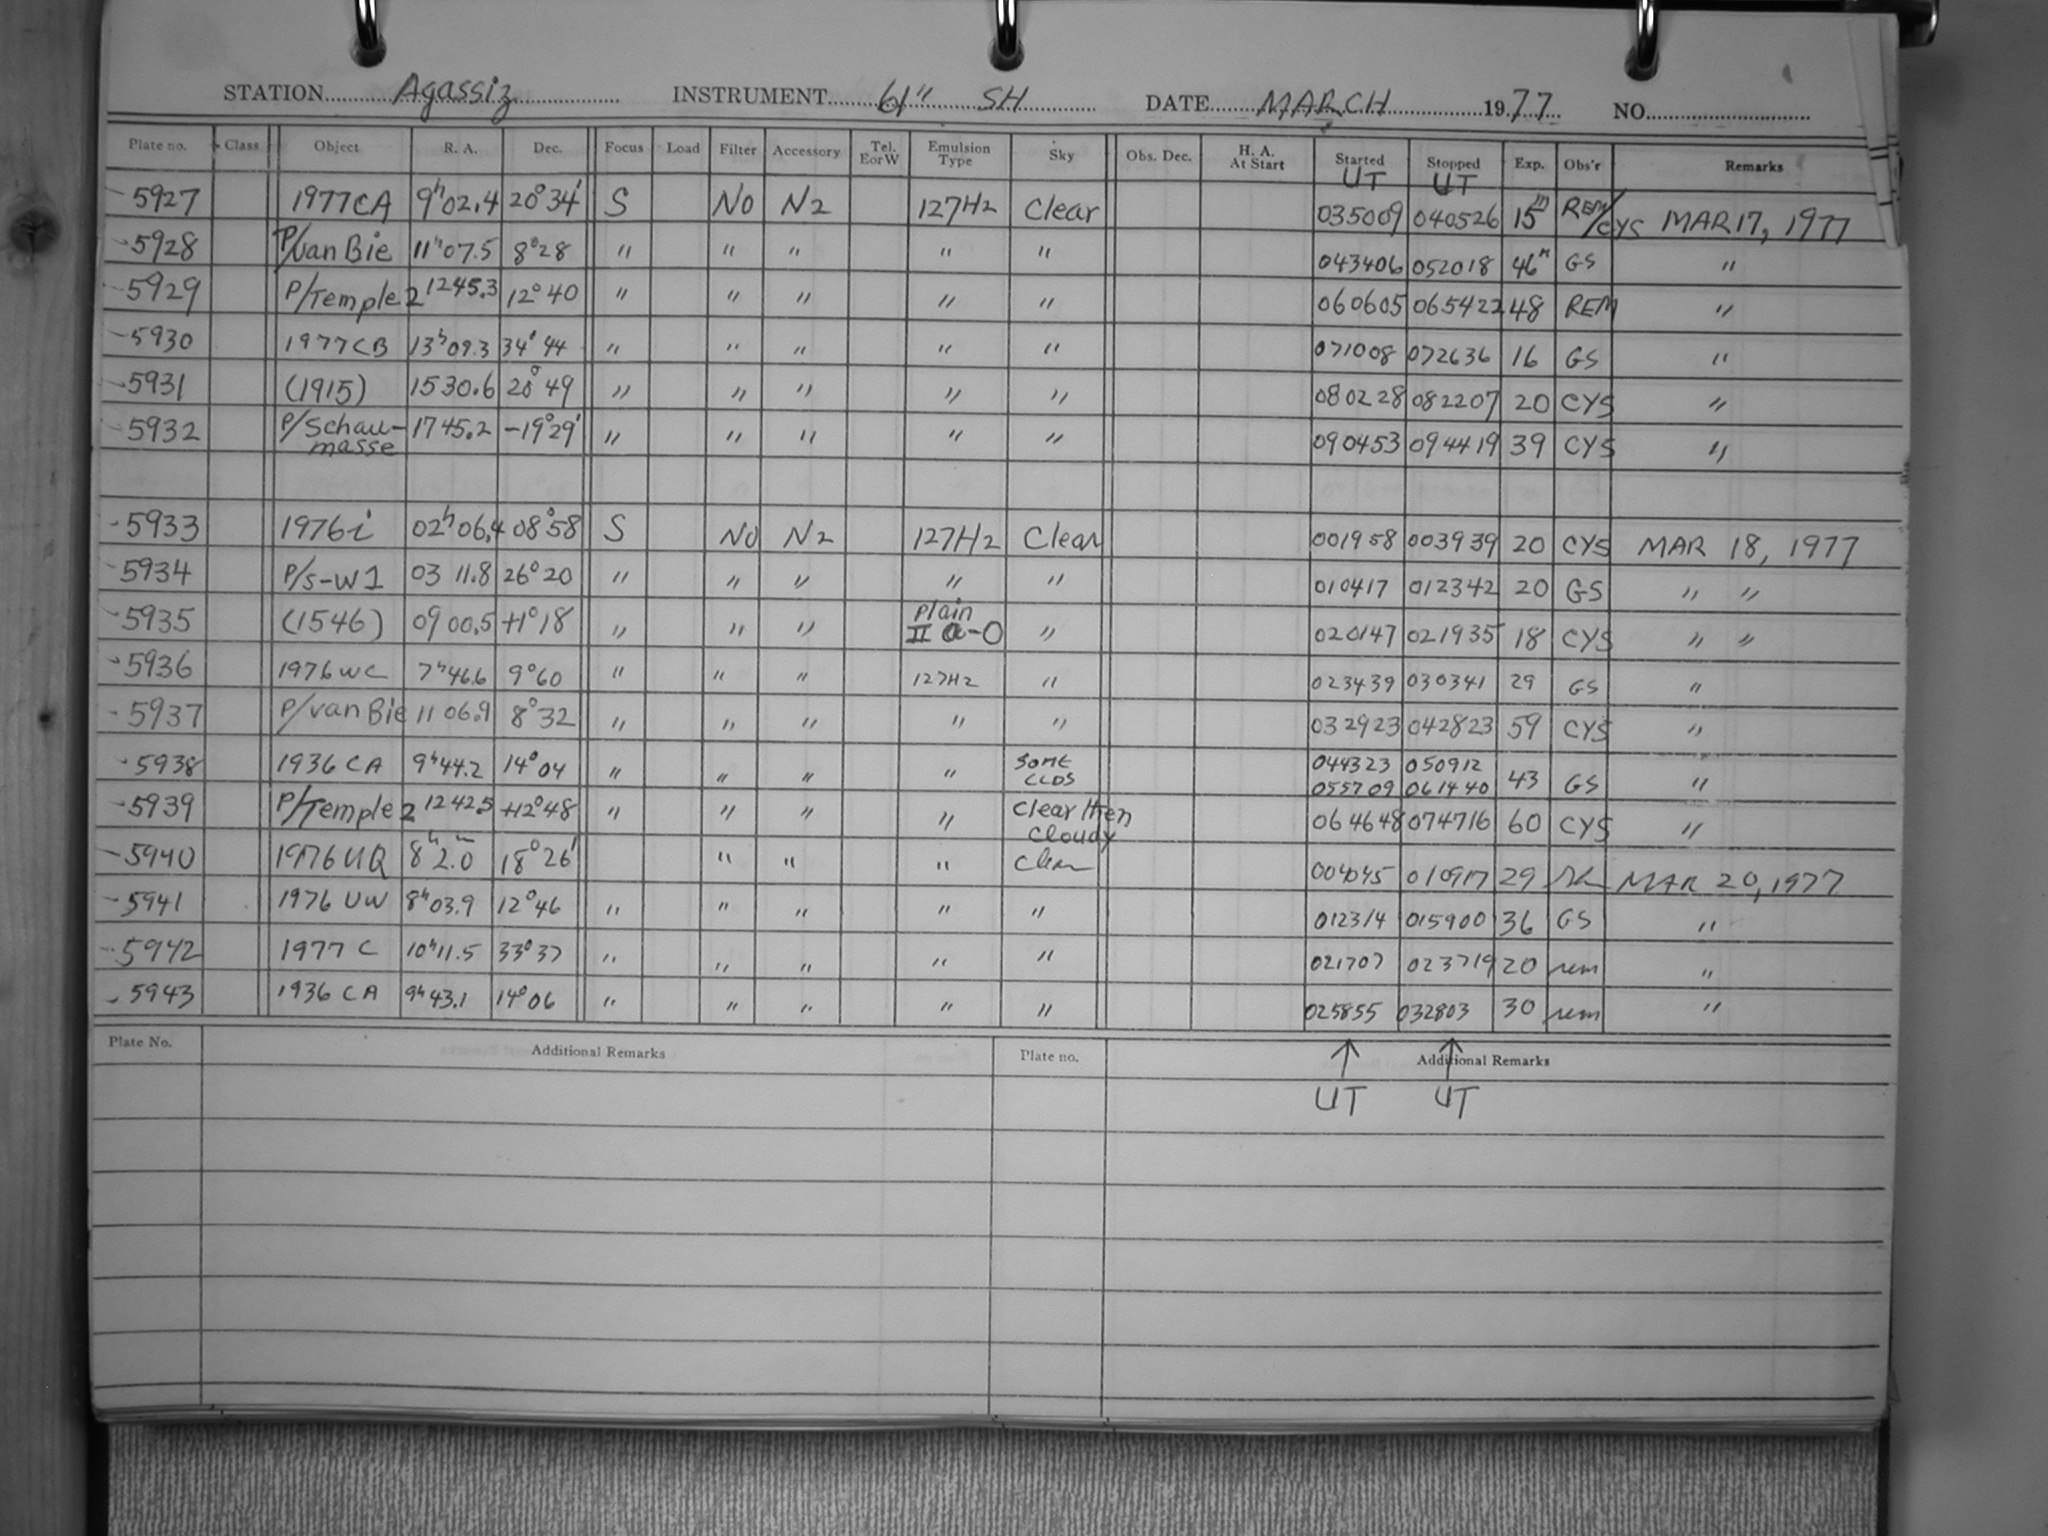 STATION Agassiz INSTRUMENT 61" SH DATE MARCH 1977 NO.
Plate no. Class Object R. A. Dec. Focus Load Filter Accessory Tel. EorW Emulsion Type Sky Obs. Dec. H. A. At Start Started UT Stopped UT Exp. Obs'r Remarks
-5927 1977CA 9h02.4 20°34' S No N2 127H2 Clear 035009 040526 15m REM/CYS MAR 17, 1977
-5928 P/van Bie 11h07.5 8°28 " " " " " 043406 052018 46m GS "
-5929 P/Temple 2 1245.3 12°40 " " " " " 060605 065422 48 REM "
-5930 1977CB 13h09.3 34°44 " " " " " 071008 072636 16 GS "
-5931 (1915) 1530.6 20°49 " " " " " 080228 082207 20 CYS "
-5932 P/Schau-masse 1745.2 -19°29' " " " " " 090453 094419 39 CYS "
-5933 1976i 02h06.4 08°58 S No N2 127H2 Clear 001958 003939 20 CYS MAR 18, 1977
-5934 P/S-W1 03 11.8 26°20 " " " " " 010417 012342 20 GS " "
-5935 (1546) 09 00.5 +1°18 " " " Plain II a-O " 020147 021935 18 CYS " "
-5936 1976WC 7h46.6 9°60 " " " 127H2 " 023439 030341 29 GS "
-5937 P/van Bie 11 06.9 8°32 " " " " " 032923 042823 59 CYS "
-5938 1936 CA 9h44.2 14°04 " " " " SOME CLDS 044323 050912 43 GS "
055709 061440
-5939 P/Temple 2 1242.5 +12°48 " " " " Clear then Cloudy 064648 074716 60 CYS "
-5940 1976UQ 8h2.0m 18°26' " " " Clear 004045 010917 29 MAR 20, 1977
-5941 1976 UW 8h03.9 12°46 " " " " " 012314 015900 36 GS "
-5942 1977 C 10h11.5 33°37 " " " " " 021707 023719 20 rem "
-5943 1936 CA 9h43.1 14°06 " " " " " 025855 032803 30 rem "
Plate No. Additional Remarks Plate no. Additional Remarks
UT UT